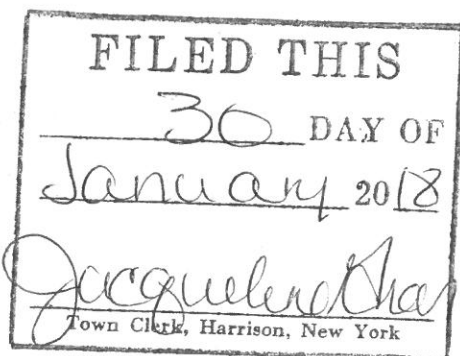 FILED THIS
30 DAY OF
January 2018
Jacqueline
Town Clerk, Harrison, New York